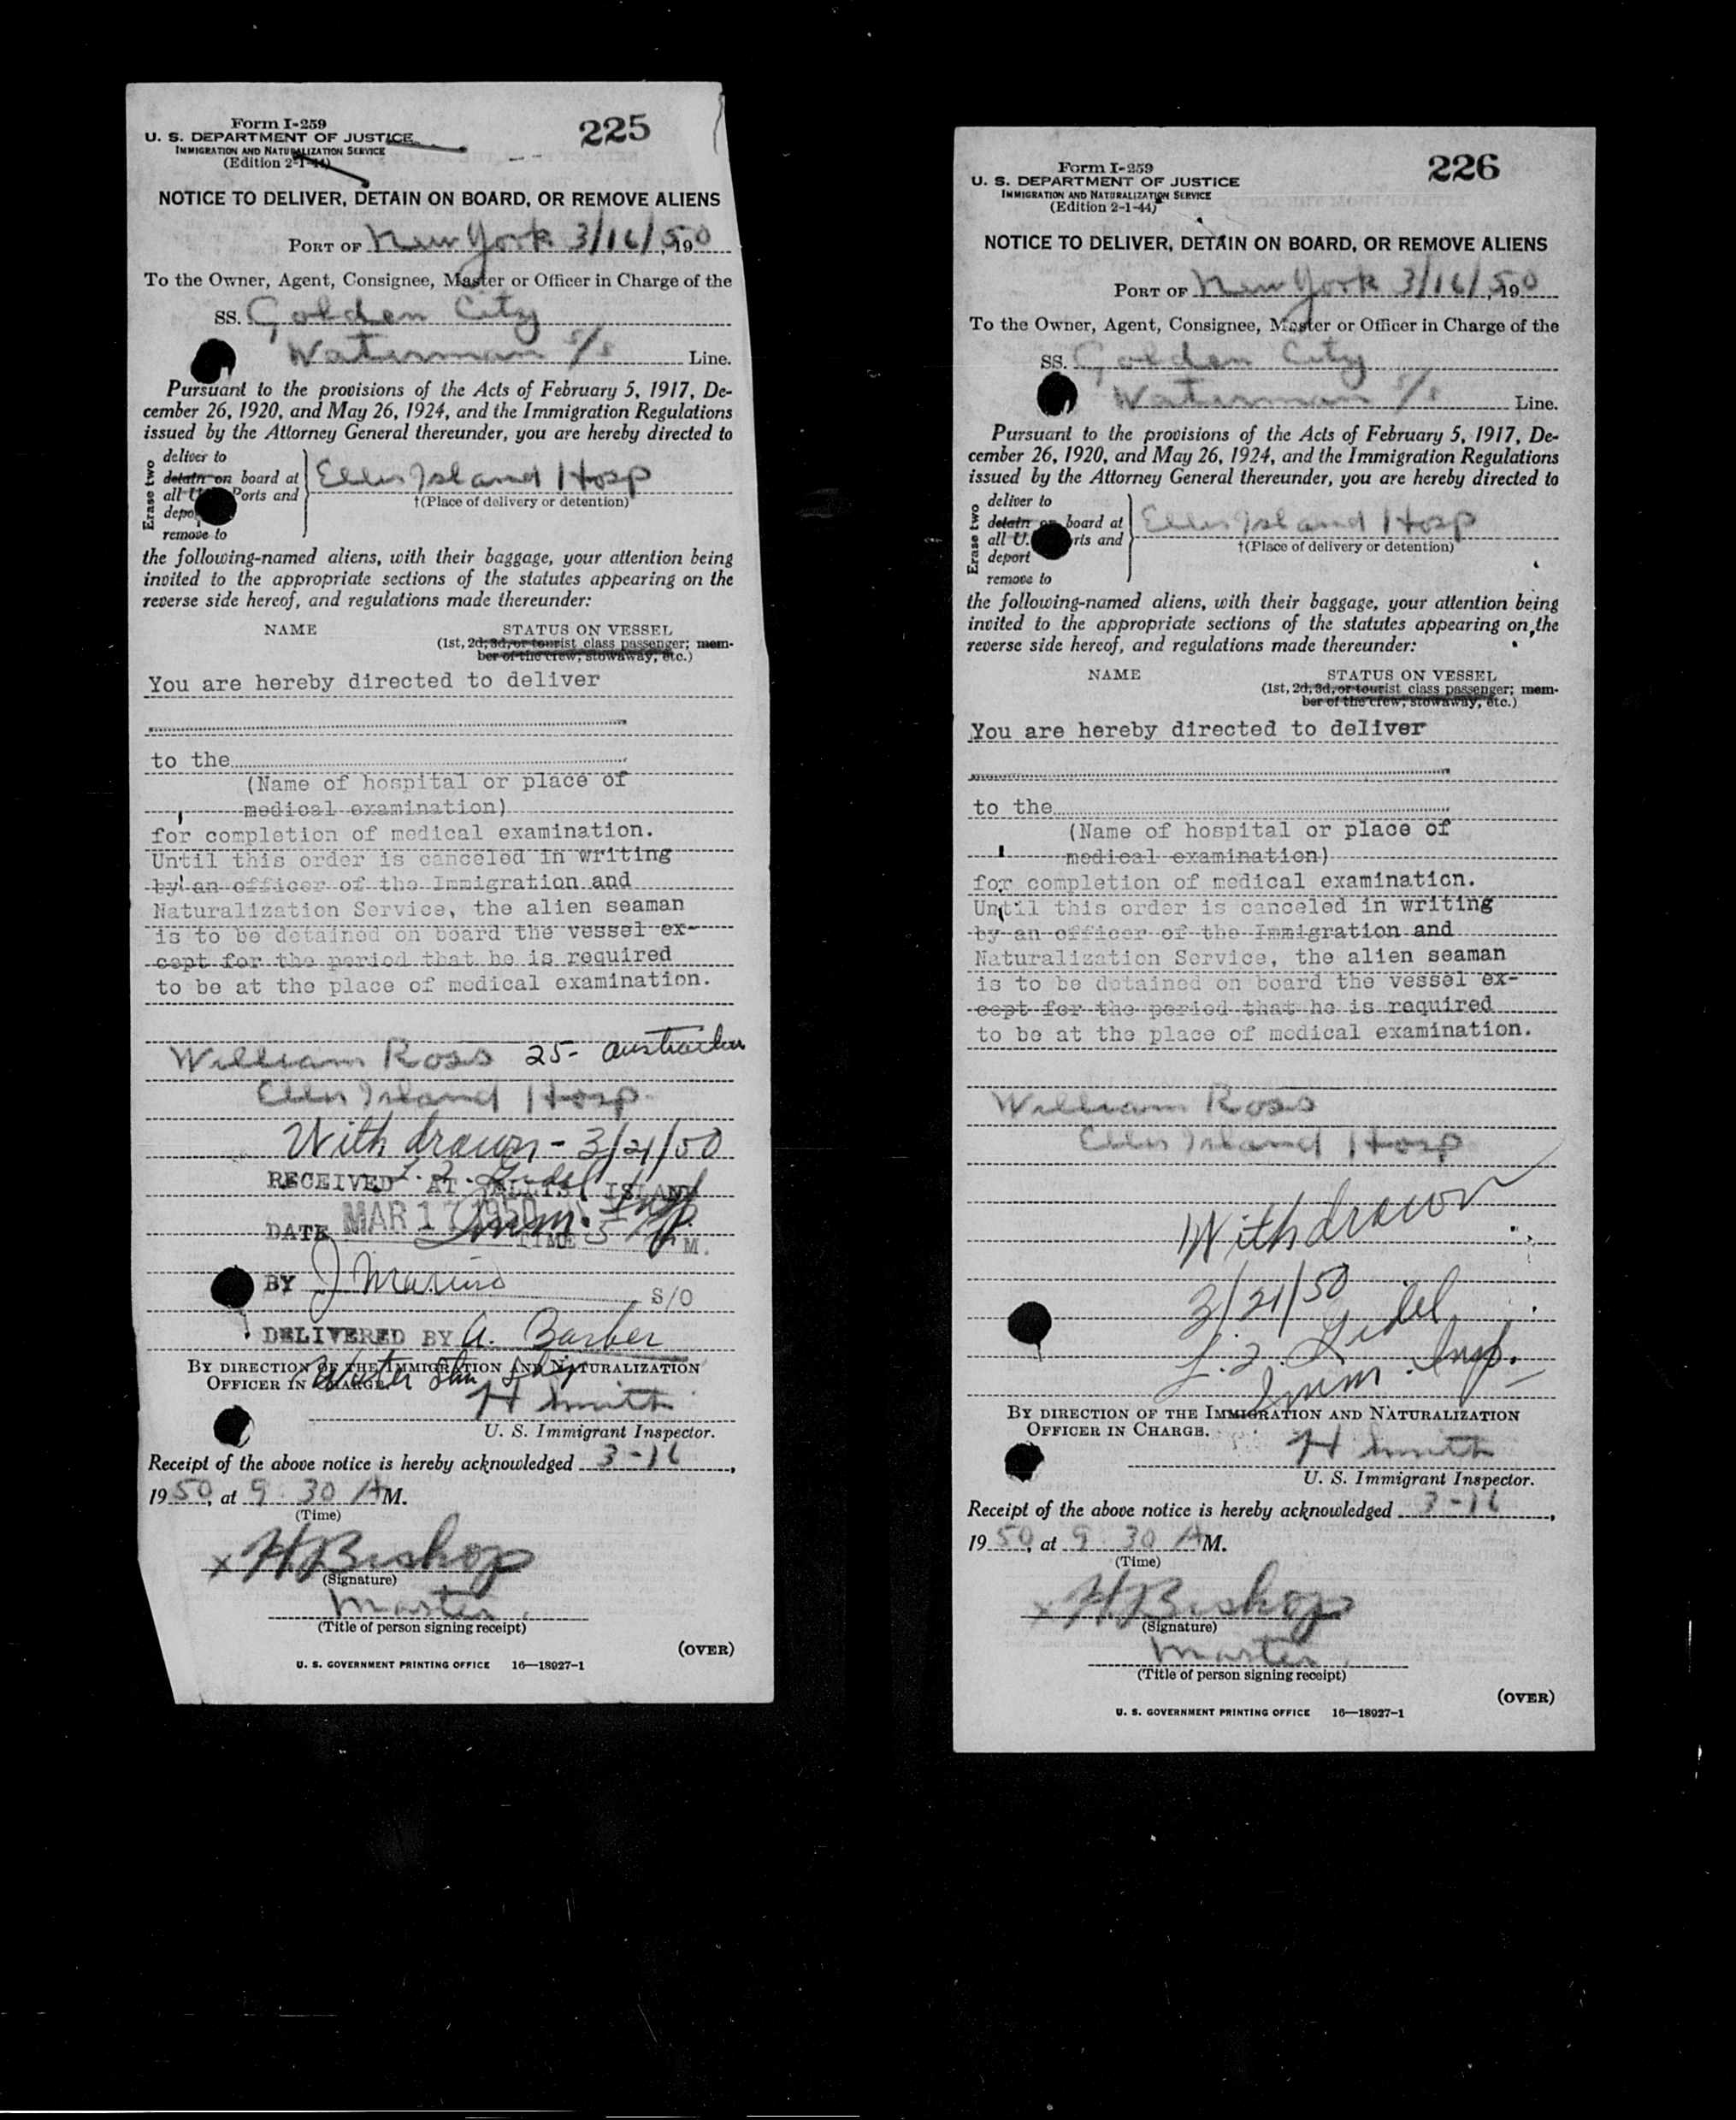 Form I-259
225
U. S. DEPARTMENT OF JUSTICE
IMMIGRATION AND NATURALIZATION SERVICE
(Edition 2-1-44)
NOTICE TO DELIVER, DETAIN ON BOARD, OR REMOVE ALIENS
PORT OF New York 3/16/, 1950
To the Owner, Agent, Consignee, Master or Officer in Charge of the
SS. Golden City
Waterman S/S Line.
Pursuant to the provisions of the Acts of February 5, 1917, De-
cember 26, 1920, and May 26, 1924, and the Immigration Regulations
issued by the Attorney General thereunder, you are hereby directed to
Erase two
deliver to
detain on board at
all U. Ports and
depo
remove to
Ellis Island Hosp
†(Place of delivery or detention)
the following-named aliens, with their baggage, your attention being
invited to the appropriate sections of the statutes appearing on the
reverse side hereof, and regulations made thereunder:
NAME STATUS ON VESSEL
(1st, 2d, 3d, or tourist class passenger; mem-
ber of the crew, stowaway, etc.)
You are hereby directed to deliver
to the
(Name of hospital or place of
medical examination)
for completion of medical examination.
Until this order is canceled in writing
by an officer of the Immigration and
Naturalization Service, the alien seaman
is to be detained on board the vessel ex-
cept for the period that he is required
to be at the place of medical examination.
William Ross 25- Australian
Ellis Island Hosp.
Withdrawn - 3/21/50
RECEIVED AT ELLIS ISLAND
DATE MAR 17 1950 Imm. Insp. TIME 5 M.
BY J Marino S/O
DELIVERED BY A. Barber
BY DIRECTION OF THE IMMIGRATION AND NATURALIZATION
OFFICER IN CHARGE.
H Smith
U. S. Immigrant Inspector.
Receipt of the above notice is hereby acknowledged 3-16,
1950, at 9 30 AM.
(Time)
x H Bishop
(Signature)
Master
(Title of person signing receipt)
(OVER)
U. S. GOVERNMENT PRINTING OFFICE 16—18927-1
Form I-259
226
U. S. DEPARTMENT OF JUSTICE
IMMIGRATION AND NATURALIZATION SERVICE
(Edition 2-1-44)
NOTICE TO DELIVER, DETAIN ON BOARD, OR REMOVE ALIENS
PORT OF New York 3/16/, 1950
To the Owner, Agent, Consignee, Master or Officer in Charge of the
SS. Golden City
Waterman S/S Line.
Pursuant to the provisions of the Acts of February 5, 1917, De-
cember 26, 1920, and May 26, 1924, and the Immigration Regulations
issued by the Attorney General thereunder, you are hereby directed to
Erase two
deliver to
detain on board at
all U. rts and
deport
remove to
Ellis Island Hosp
†(Place of delivery or detention)
the following-named aliens, with their baggage, your attention being
invited to the appropriate sections of the statutes appearing on the
reverse side hereof, and regulations made thereunder:
NAME STATUS ON VESSEL
(1st, 2d, 3d, or tourist class passenger; mem-
ber of the crew, stowaway, etc.)
You are hereby directed to deliver
to the
(Name of hospital or place of
medical examination)
for completion of medical examination.
Until this order is canceled in writing
by an officer of the Immigration and
Naturalization Service, the alien seaman
is to be detained on board the vessel ex-
cept for the period that he is required
to be at the place of medical examination.
William Ross
Ellis Island Hosp
Withdrawn
3/21/50
Imm. Insp.
BY DIRECTION OF THE IMMIGRATION AND NATURALIZATION
OFFICER IN CHARGE.
H Smith
U. S. Immigrant Inspector.
Receipt of the above notice is hereby acknowledged 3-16,
1950, at 9 30 AM.
(Time)
x H Bishop
(Signature)
Master
(Title of person signing receipt)
(OVER)
U. S. GOVERNMENT PRINTING OFFICE 16—18927-1